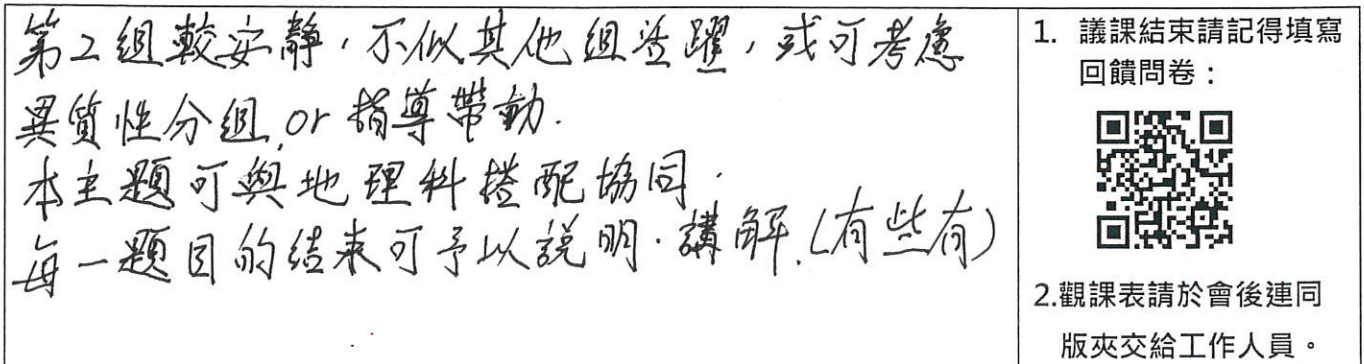 第2組較安靜，不似其他組踴躍，或可考慮
異質性分組 or 指導帶動.
本主題可與地理科搭配協同.
每一題目的結束可予以說明.講解.(有些有)
1. 議課結束請記得填寫
回饋問卷：
2.觀課表請於會後連同
版夾交給工作人員。